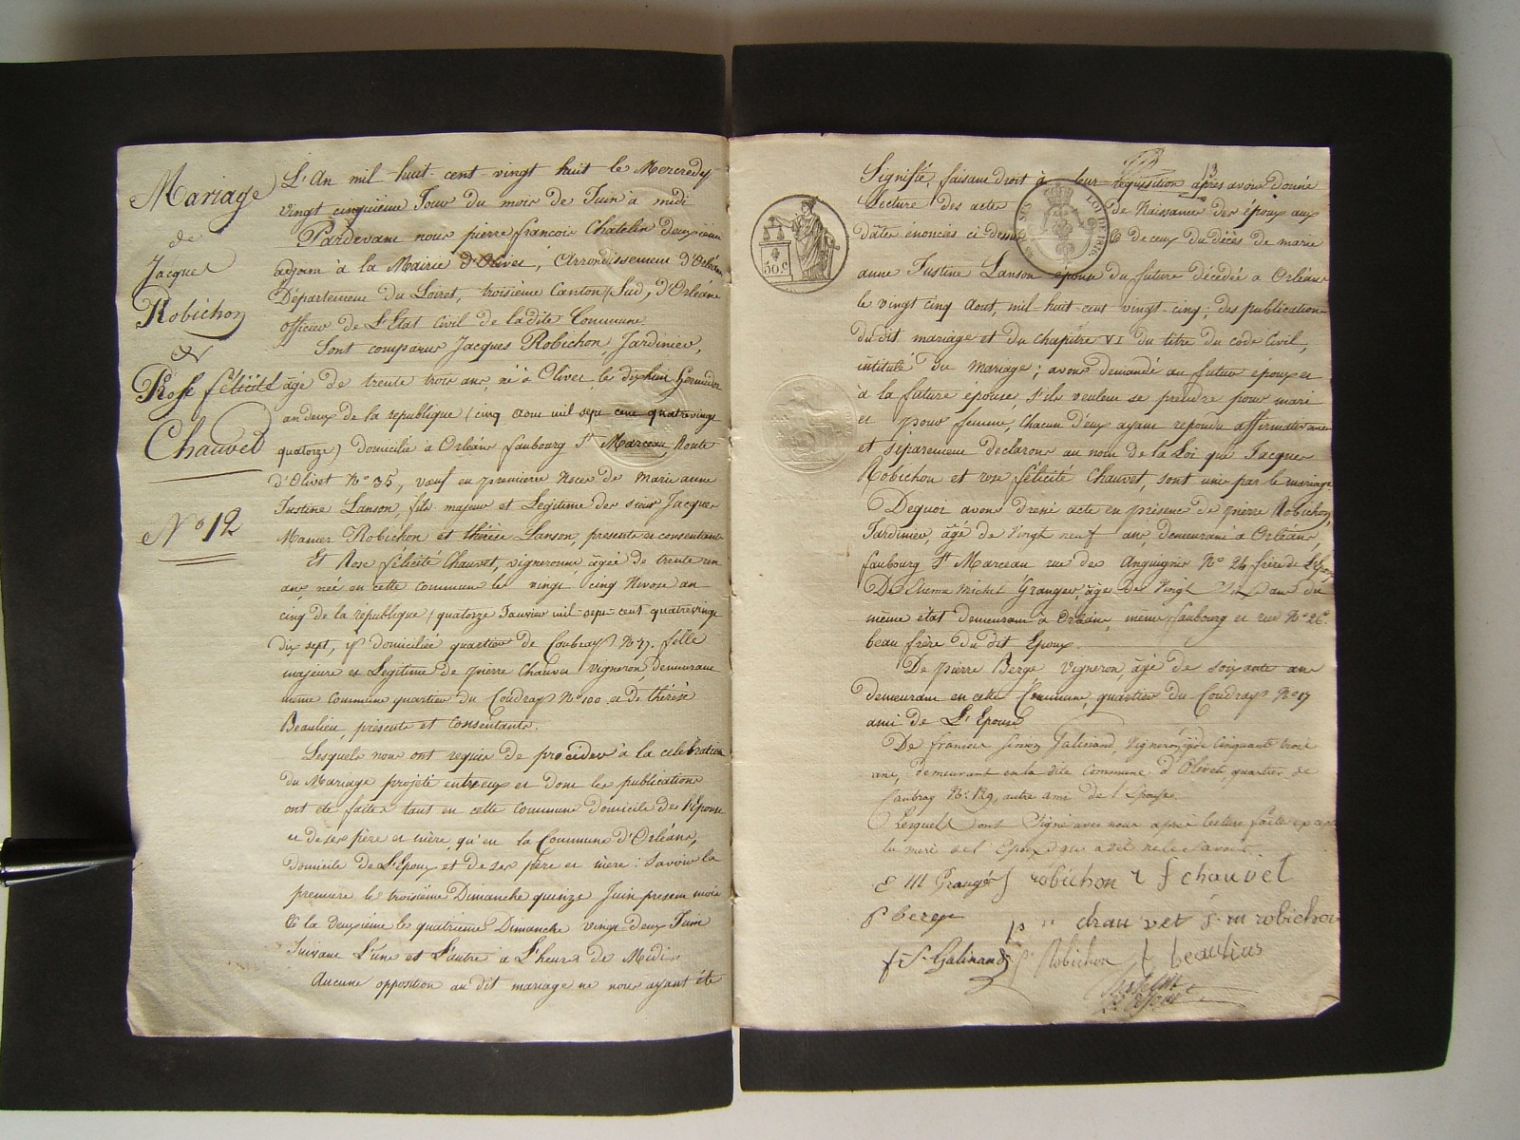 Mariage
de
Jacques
Robichon
&
Rose félicité
Chauvet
N° 12
L'An mil huit cent vingt huit le Mercredy
vingt cinquième Jour du mois de Juin à midi
Pardevant nous pierre françois Chatelin deuxième
adjoint à la Mairie d'Olivet, Arrondissement d'Orléans
Département du Loiret, troisième Canton (Sud) d'Orléans
officier de L'Etat Civil de ladite Commune
Sont comparus Jacques Robichon, Jardinier,
âgé de trente trois ans, né à Olivet le dixhuit
an deux de la republique (cinq aout mil sept cent quatrevingt
quatorze) domicilié à Orléans faubourg St Marceau Route
d'Olivet N° 35, veuf en premiere Noces de Marie anne
Justine Lanson, fils majeur et Legitime des sieur Jacques
Robichon et thérèse Lanson, presents et consentants
Et Rose félicité Chauvet, vigneronne, âgée de trente un
ans née en cette commune le vingt cinq Nivose an
cinq de la république (quatorze Janvier mil-sept-cent quatrevingt
dix sept, y domiciliée quartier de N° 47. fille
majeure et Legitime de pierre Chauvet vigneron, demeurant
même commune quartier du Coudray N° 100 et de thérèse
Beaulieu, présents et consentants.
Lesquels nous ont requis de procéder à la celebration
du Mariage projeté entr'eux et dont les publications
ont été faites tant en cette commune domicile de l'Epouse
et de ses père et mère, qu'en la Commune d'Orléans,
domicile de L'Epoux et de ses père et mère : Savoir la
premiere le troisième Dimanche quinze Juin present mois
& la deuxième le quatrieme Dimanche vingt-deux Juin
Suivant L'une et L'autre à L'heure de Midi.
Aucune opposition au dit mariage ne nous ayant été
13
Signifié, faisant droit à leur requisition après avoir donné
Lecture des actes de Naissance des époux aux
dâtes énoncés ci dessus & de ceux du décès de marie
anne Justine Lanson épouse du future décédée à Orléans
le vingt cinq Aout, mil huit cent vingt cinq ; des publications
du dit mariage et du chapitre VI du titre du code Civil,
intitulé du Mariage ; avons demandé au futur époux et
à la future épouse, s'ils veulent se prendre pour mari
et pour femme, chacun d'eux ayant repondu affirmativement
et séparement declarons au nom de la Loi que Jacques
Robichon et rose félicité Chauvet, sont unis par le mariage
Dequoi avons dressé acte en présence de pierre Robichon,
Jardinier, âgé de Vingt neuf ans, demeurant à Orléans,
faubourg St Marceau rue des Anguignis N° 24 frère de L'Epoux
De Etienne Michel Granger, âgé de Vingt ans du
même état demeurant à Orléans, même faubourg et rue N° 26
beau frère du dit Epoux.
De pierre Berge vigneron, âgé de soixante ans
demeurant en cette Commune, quartier du Coudray N° 17
ami de L'Epouse
De françois simon Galinand, vigneron, âgé cinquante trois
ans, demeurant en la dite Commune d'Olivet, quartier de
N° 129, autre ami de l'Epouse.
Lesquels ont signé avec nous après lecture faite excepté
la mere de l'Epoux
E M Granger J robichon r f chauvet
P berge p chauvet j. m robichon
f S Galinand Robichon t beaulieu
50 c.
LOI DE 1816